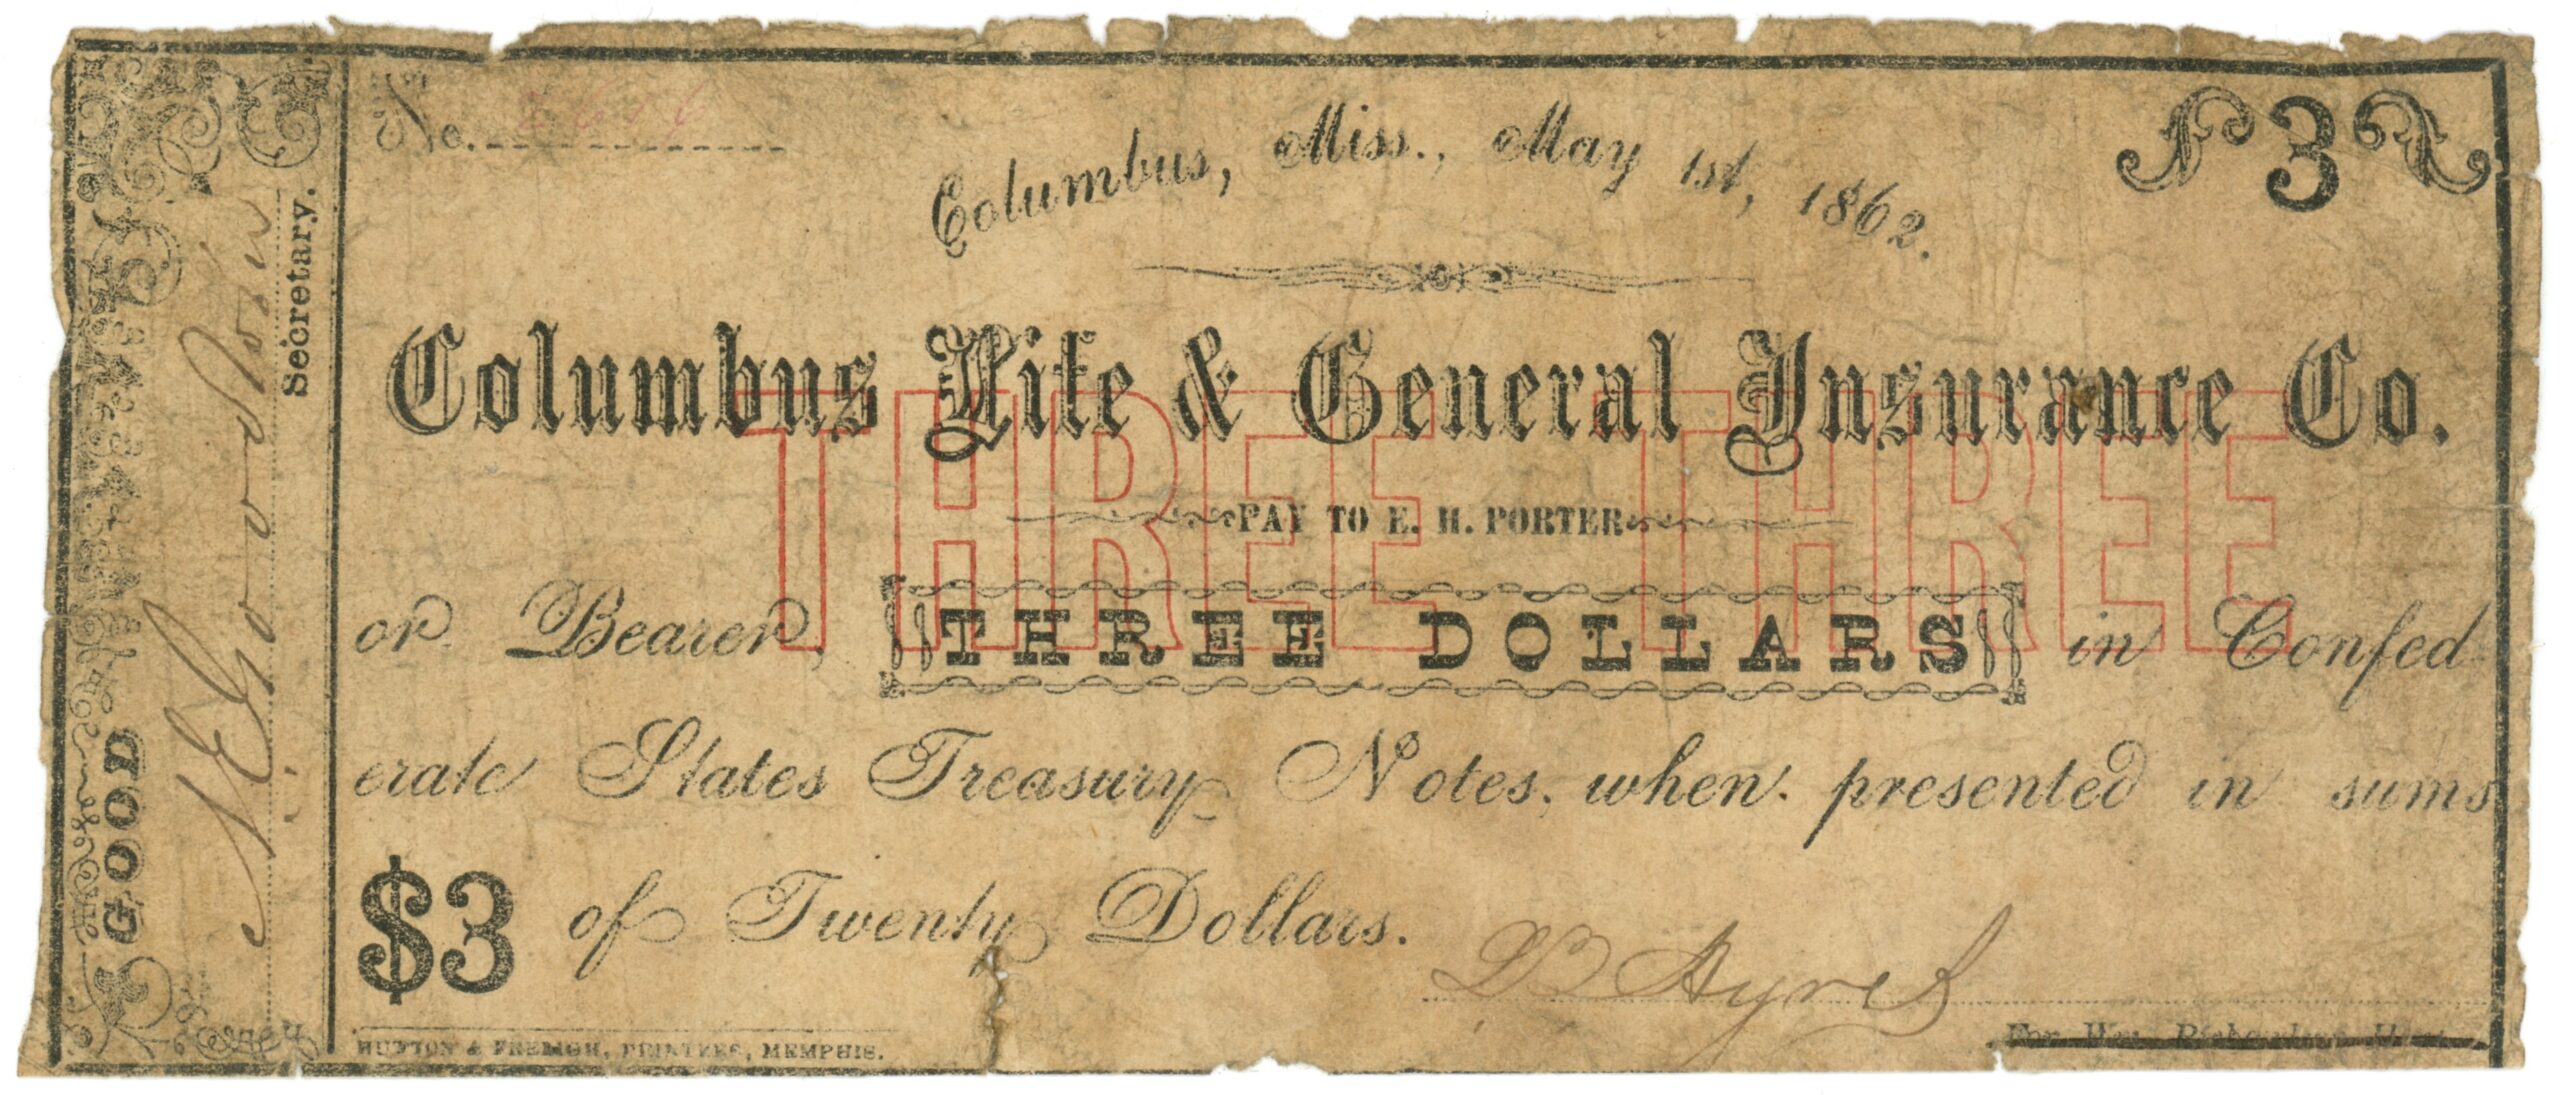 No.
Columbus, Miss., May 1st, 1862.
3
Columbus Life & General Insurance Co.
THREE THREE
PAY TO E. H. PORTER
or Bearer, THREE DOLLARS in Confed
erate States Treasury Notes, when presented in sums
$3 of Twenty Dollars.
Ayres
HUTTON & FRELIGH, PRINTERS, MEMPHIS.
For Wm.
GOOD
Secretary.